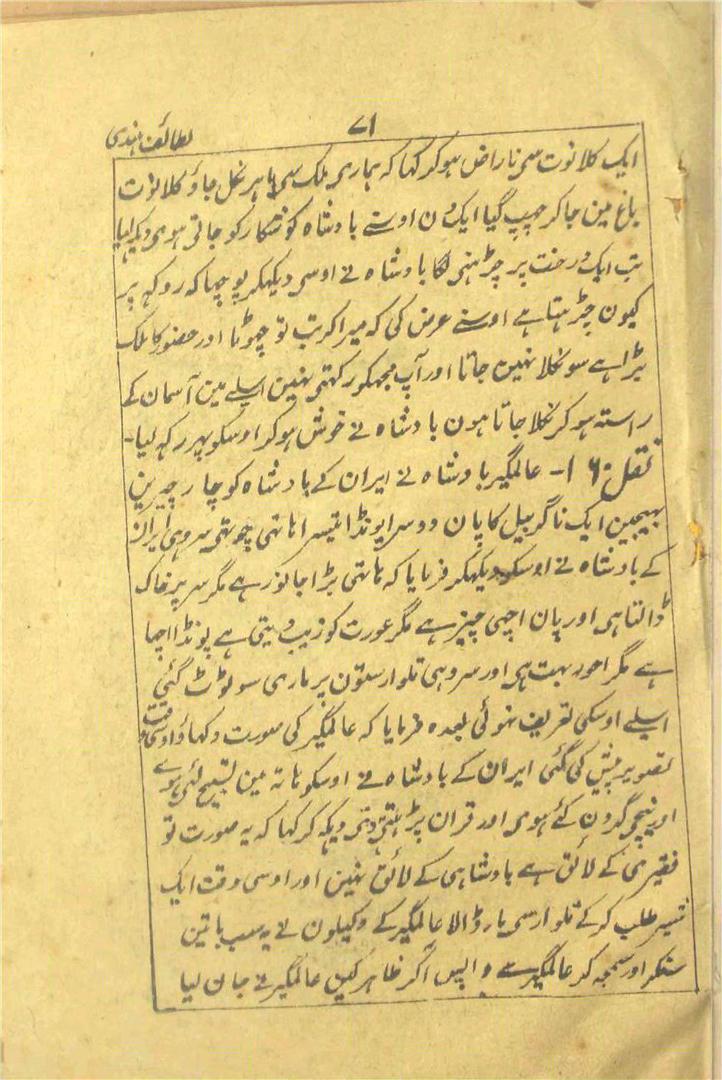 ۷۱
لطائف ہندی
ایک کلانوت سی ناراض ہوکر کہا کہ ہماری ملک سی باہر نکل جاؤ کلانوت
باغ مین جاکر چہپ گیا ایک دن اوسنے بادشاہ کو شکار کو جاتی ہوی دیکہہ لیا
تب ایک درخت پر چڑہنی لگا بادشاہ نے اوسی دیکہکر پوچہا کہ روکہہ پر
کیون چڑہتا ہے اوسنے عرض کی کہ میرا کرتب تو چہوٹا اور حضور کا ملک
بڑا ہے سو نکلا نہین جاتا اور آپ مجہکو رکہتی نہین اسلے مین آسمان کے
راستہ ہوکر نکلا جاتا ہون بادشاہ نے خوش ہوکر اوسکو پہر رکہہ لیا۔
نقل ۱۶۰۔ عالمگیر بادشاہ نے ایران کے بادشاہ کو چار چیزین
بہیجین ایک ناگر بیل کا پان دوسرا پونڈا تیسرا ہاتہی چوتہی سروہی ایران
کے بادشاہ نے اوسکو دیکہکر فرمایا کہ ہاتہی بڑا جانور ہے مگر سر پر خاک
ڈالتا ہی اور پان اچہی چیز ہے مگر عورت کو زیب دیتی ہے پونڈا اچہا
ہے مگر بہت ہی اور سروہی تلوار ستون پر ماری سو ٹوٹ گئی
اسلے اوسکی تعریف نہوئی بعدہ فرمایا کہ عالمگیر کی صورت دکہاؤ اوسی وقت
تصویر پیش کی گئی ایران کے بادشاہ نے اوسکو ہاتہ مین تسبیح لئی ہوے
اور نیچی گردن کئے ہوی اور قران پڑہتی دیکہہ کر کہا کہ یہ صورت تو
فقیری کے لائق ہے بادشاہی کے لائق نہین اور اوسی وقت ایک
طلب کرکے تلوار سی مار ڈالا عالمگیر کے وکیلون نے یہ سب باتین
سنکر اور سمجہہ کر عالمگیر سے واپس آکر ظاہر کین عالمگیر نے جان لیا